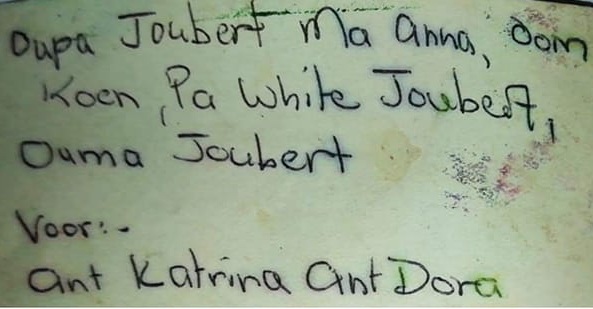 Oupa Joubert Ma Anna, Oom
Koen, Pa White Joubert,
Ouma Joubert
Voor:-
Ant Katrina Ant Dora